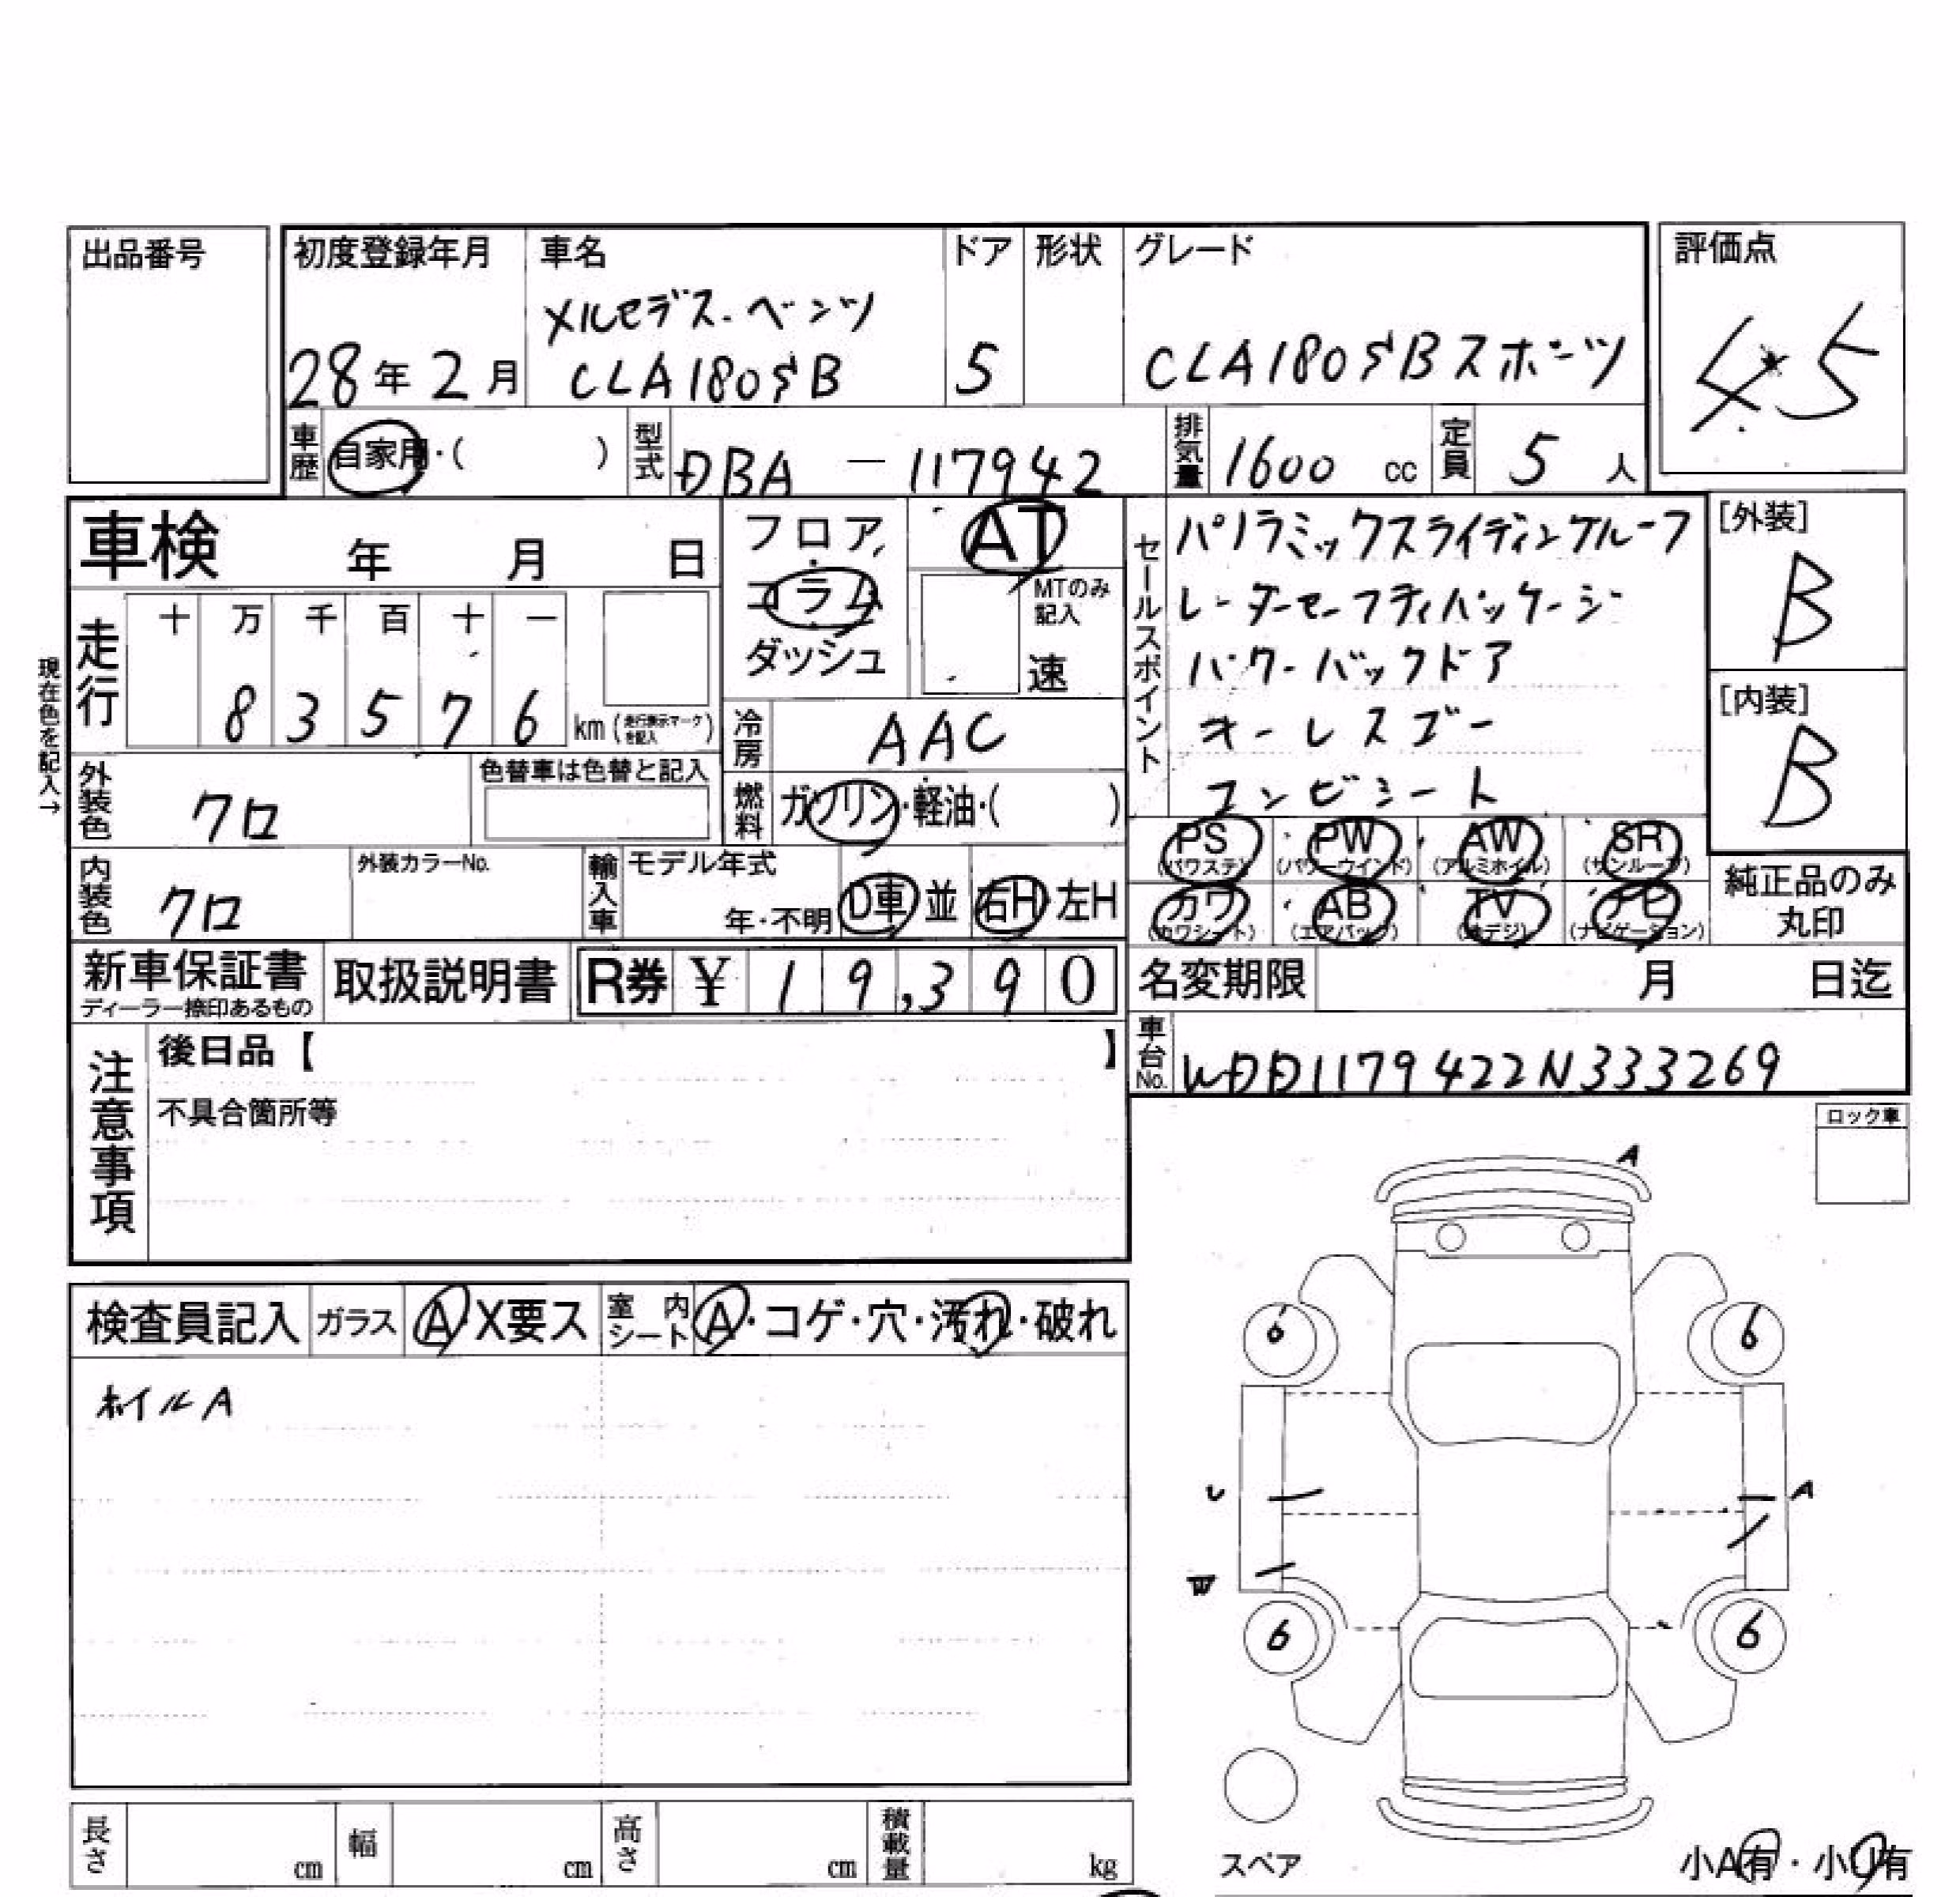 出品番号
初度登録年月 車名 ドア 形状 グレード 評価点
メルセデス・ベンツ
28年2月 CLA180SB 5 CLA180SBスポーツ 4.5
車歴 自家用・( ) 型式 DBA-117942 排気量 1600cc 定員 5人
車検 年 月 日
フロア AT
コラム MTのみ記入
ダッシュ 速
走行 十 万 千 百 十 一
8 3 5 7 6 km (走行表示マークを記入)
現在色を記入→
冷房 AAC
外装色 クロ 色替車は色替と記入
燃料 ガソリン・軽油・( )
内装色 クロ 外装カラーNo. 輸入車 モデル年式 年・不明 D車 並 右H・左H
セールスポイント
パノラミックスライディングルーフ
レーダーセーフティパッケージ
パワーバックドア
キーレスゴー
コンビシート
[外装]
B
[内装]
B
PS PW AW SR
(パワステ) (パワーウインド) (アルミホイル) (サンルーフ)
カワ AB TV ナビ
(カワシート) (エアバッグ) (地デジ) (ナビゲーション)
純正品のみ
丸印
新車保証書 取扱説明書 R券 ¥ 1 9,3 9 0
ディーラー捺印あるもの
名変期限 月 日迄
車台No. WDD1179422N333269
注意事項
後日品【 】
不具合箇所等
ロック車
検査員記入 ガラス A・X要ス 室内シート A・コゲ・穴・汚れ・破れ
ホイルA
A
6 6
U A
W
6 6
スペア 小A有・小U有
長さ cm 幅 cm 高さ cm 積載量 kg